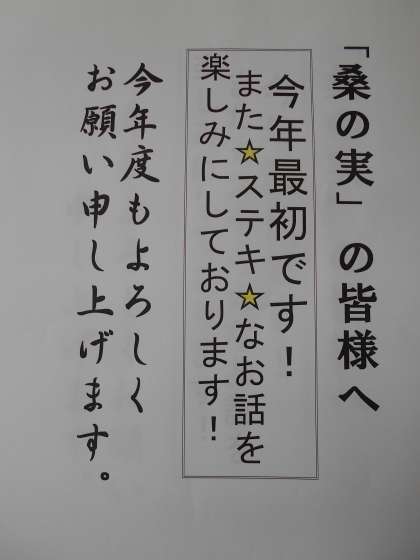 「桑の実」の皆様へ
今年最初です！
また★ステキ★なお話を
楽しみにしております！
今年度もよろしく
お願い申し上げます。